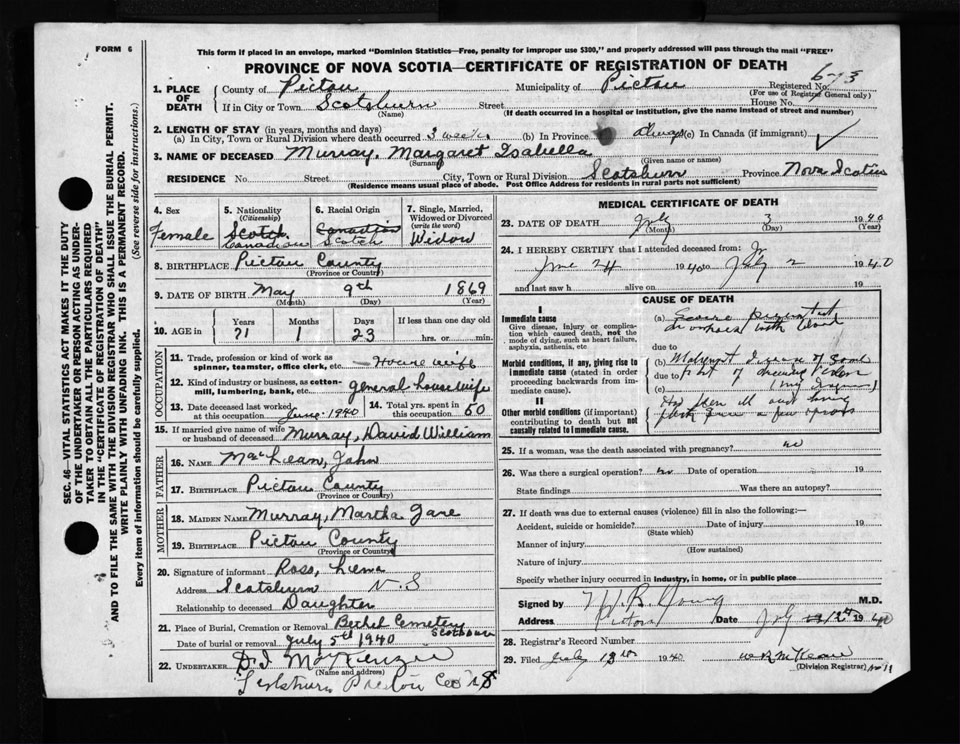 FORM 6
This form if placed in an envelope, marked "Dominion Statistics—Free, penalty for improper use $300," and properly addressed will pass through the mail "FREE"
PROVINCE OF NOVA SCOTIA—CERTIFICATE OF REGISTRATION OF DEATH
6-73
1. PLACE OF DEATH County of Pictou Municipality of Pictou Registered No.
(For use of Registrar General only)
If in City or Town Scotsburn Street House No.
(Name) (If death occurred in a hospital or institution, give the name instead of street and number)
2. LENGTH OF STAY (in years, months and days)
(a) In City, Town or Rural Division where death occurred 3 weeks (b) In Province always (c) In Canada (if immigrant)
3. NAME OF DECEASED Murray, Margaret Isabella
(Surname) (Given name or names)
RESIDENCE No. Street City, Town or Rural Division Scotsburn Province Nova Scotia
(Residence means usual place of abode. Post Office Address for residents in rural parts not sufficient)
4. Sex
Female
5. Nationality
(Citizenship)
Scotch
Canadian
6. Racial Origin
Canadian
Scotch
7. Single, Married, Widowed or Divorced
(write the word)
Widow
8. BIRTHPLACE Pictou County
(Province or Country)
9. DATE OF BIRTH May 9th 1869
(Month) (Day) (Year)
10. AGE in Years Months Days If less than one day old
71 1 23 hrs. or min.
OCCUPATION
11. Trade, profession or kind of work as spinner, teamster, office clerk, etc. Housewife
12. Kind of industry or business, as cotton-mill, lumbering, bank, etc. general housewife
13. Date deceased last worked at this occupation June 1940
14. Total yrs. spent in this occupation 50
15. If married give name of wife or husband of deceased Murray, David William
FATHER
16. NAME MacLean, John
17. BIRTHPLACE Pictou County
(Province or Country)
MOTHER
18. MAIDEN NAME Murray, Martha Jane
19. BIRTHPLACE Pictou County
(Province or Country)
20. Signature of informant Ross, Lena
Address Scotsburn N.S
Relationship to deceased Daughter
21. Place of Burial, Cremation or Removal Bethel Cemetery Scotsburn
Date of burial or removal July 5th 1940
22. UNDERTAKER D. I. MacKenzie
(Name and address)
Scotsburn Pictou Co. N S
MEDICAL CERTIFICATE OF DEATH
23. DATE OF DEATH July 3 1940
(Month) (Day) (Year)
24. I HEREBY CERTIFY that I attended deceased from:
June 24 1940 to July 2 1940
and last saw h alive on 19
CAUSE OF DEATH
I
Immediate cause
Give disease, injury or complication which caused death, not the mode of dying, such as heart failure, asphyxia, asthenia, etc.
(a) Severe
with blood
due to
Morbid conditions, if any, giving rise to immediate cause (stated in order proceeding backwards from immediate cause).
(b) Malignant Disease of
due to part of
(c)
II
Other morbid conditions (if important) contributing to death but not causally related to immediate cause.
25. If a woman, was the death associated with pregnancy? no
26. Was there a surgical operation? no Date of operation 19
State findings Was there an autopsy?
27. If death was due to external causes (violence) fill in also the following:—
Accident, suicide or homicide? Date of injury 19
(State which)
Manner of injury
(How sustained)
Nature of injury
Specify whether injury occurred in industry, in home, or in public place
Signed by W. B. Young M.D.
Address Pictou Date July 12th 1940
28. Registrar's Record Number
29. Filed July 13th 1940 W R McKean
(Division Registrar)
No 11
SEC. 46—VITAL STATISTICS ACT MAKES IT THE DUTY
OF THE UNDERTAKER OR PERSON ACTING AS UNDERTAKER TO OBTAIN ALL THE PARTICULARS REQUIRED
IN THE "CERTIFICATE OF REGISTRATION OF DEATH"
AND TO FILE THE SAME WITH THE DIVISION REGISTRAR WHO SHALL ISSUE THE BURIAL PERMIT.
WRITE PLAINLY WITH UNFADING INK. THIS IS A PERMANENT RECORD.
Every item of information should be carefully supplied. (See reverse side for instructions.)